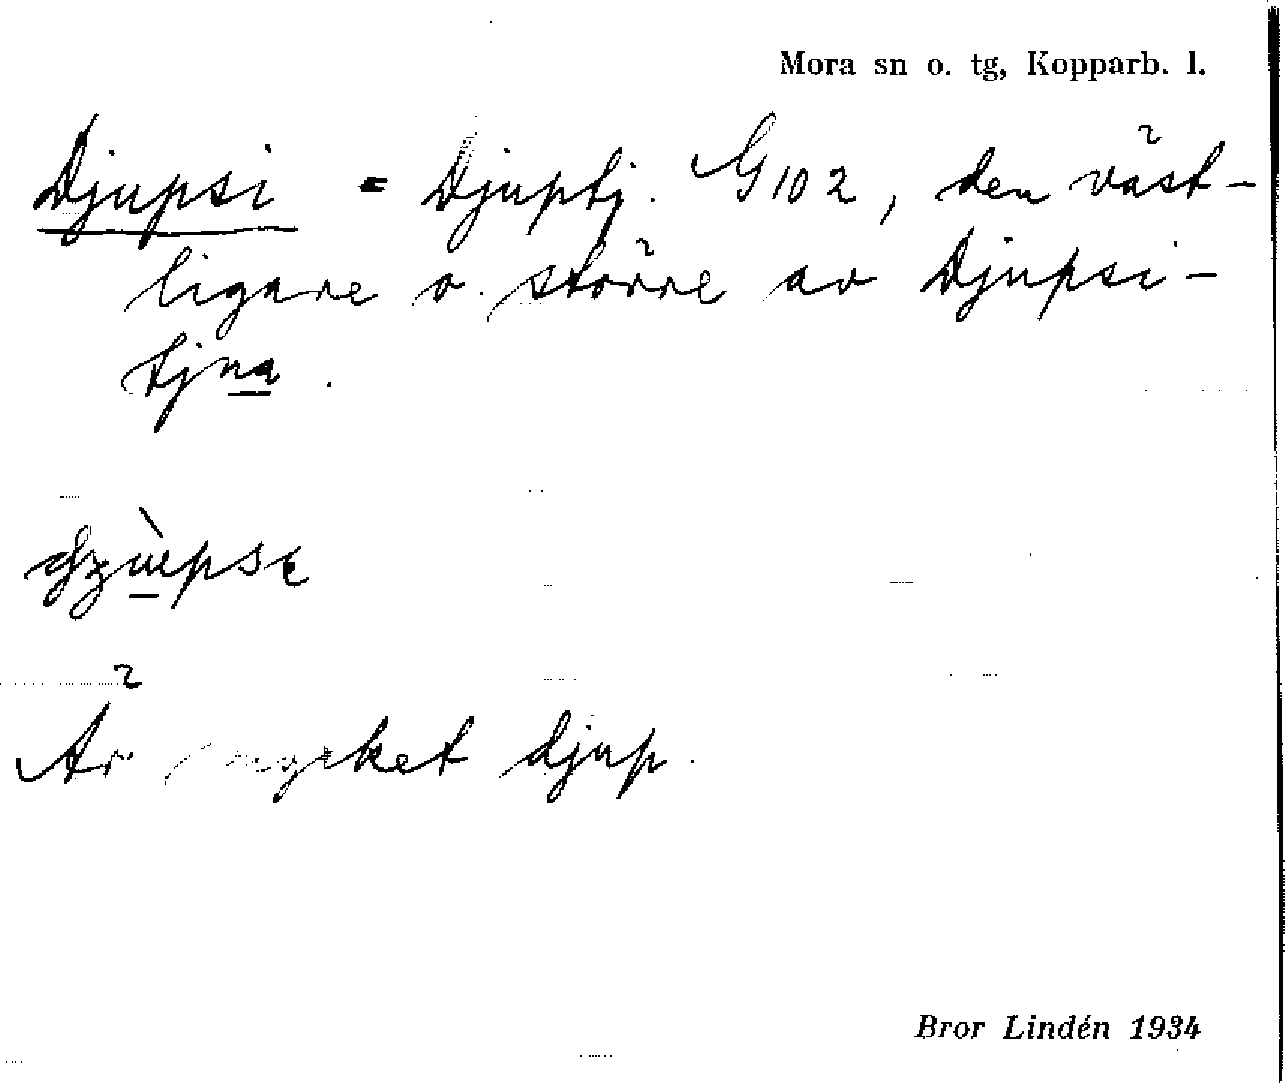 Mora sn o. tg, Kopparb. l.
Djupsi = Djuptj. G 102, den väst-
ligare o. större av Djupsi-
tjna.
Är mycket djup.
Bror Lindén 1934